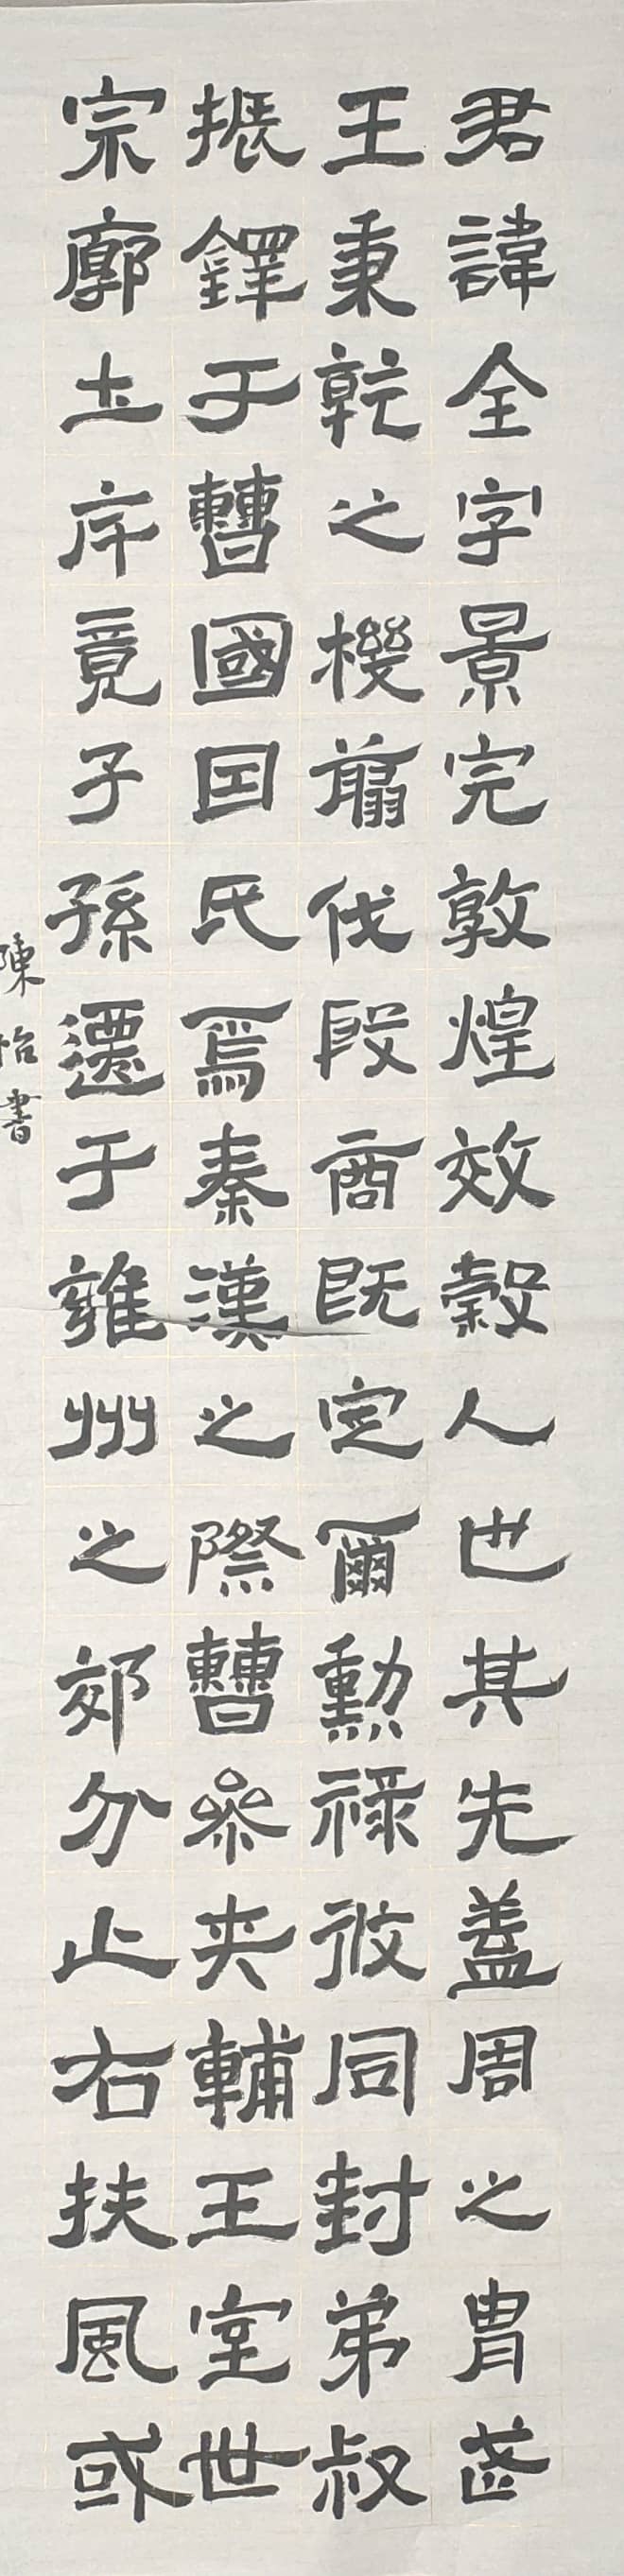 君諱全字景完敦煌效穀人也其先蓋周之胄武
王秉乾之機翦伐殷商既定爾勳祿攸同封弟叔
振鐸于曹國因氏焉秦漢之際曹參夾輔王室世
宗廓土斥竟子孫遷于雍州之郊分止右扶風或
陳怡書